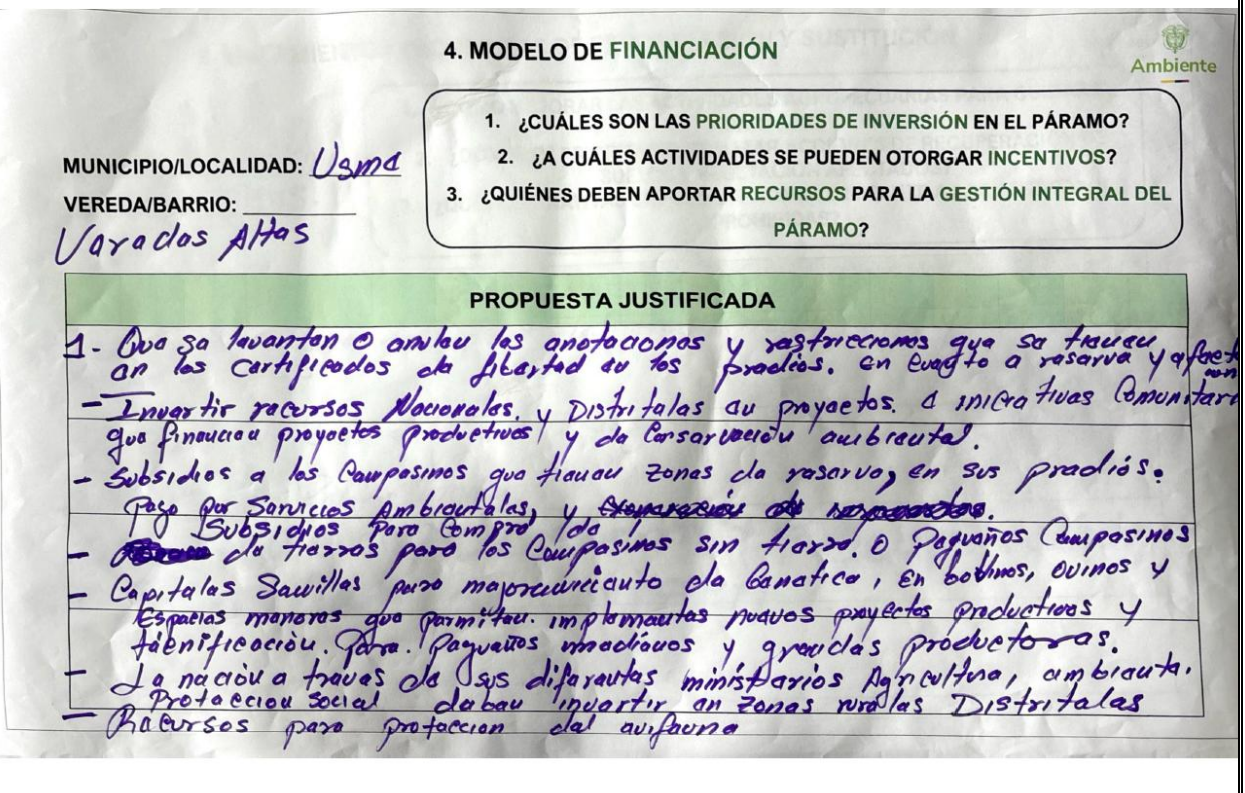 4. MODELO DE FINANCIACIÓN
Ambiente
1. ¿CUÁLES SON LAS PRIORIDADES DE INVERSIÓN EN EL PÁRAMO?
2. ¿A CUÁLES ACTIVIDADES SE PUEDEN OTORGAR INCENTIVOS?
3. ¿QUIÉNES DEBEN APORTAR RECURSOS PARA LA GESTIÓN INTEGRAL DEL
PÁRAMO?
MUNICIPIO/LOCALIDAD: Usme
VEREDA/BARRIO:
Veredas Altas
PROPUESTA JUSTIFICADA
1- Que se levanten o anulen las anotaciones y restricciones que se tienen
en los certificados de libertad en los predios. en cuagto a reserva y afect
- Invertir recursos Nacionales. y Distritales en proyectos. e iniciativas Comunitari
que financien proyectos productivos y de Conservación ambiental.
- Subsidios a los Campesinos que tienen zonas de reserva, en sus predios.
Pago por Servicios Ambientales, y
Subsidios para Compra de
- de tierras para los Campesinos sin tierra. o Pequeños Campesinos
- Capitales Semillas para mejoramiento de Genetica, en bobinos, ovinos y
Especies menores que permitan. implementas nuevos proyectos productivos y
tecnificación. Para. Pequeños medianos y grandes productores.
- La nación a traves de sus diferentes ministerios Agricultura, ambiente.
Proteccion Social deben invertir en zonas rurales Distritales
- Recursos para proteccion del avifauna